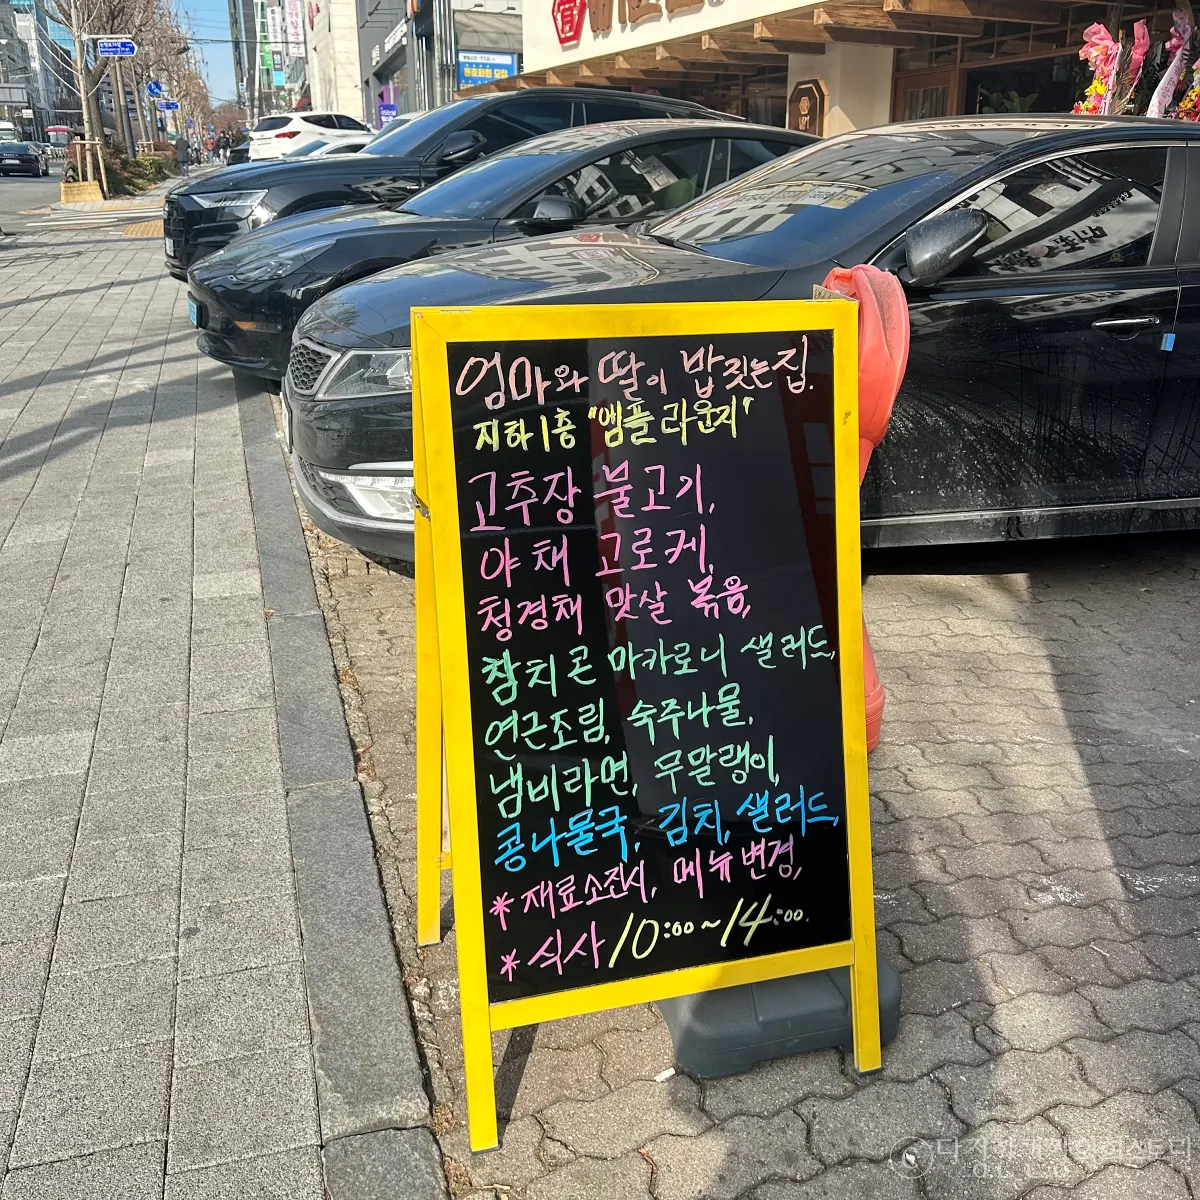 엄마와 딸이 밥짓는집.
지하1층 "앰플 라운지"
고추장 불고기,
야채 고로케,
청경채 맛살 볶음,
참치콘 마카로니 샐러드,
연근조림, 숙주나물,
냄비라면, 무말랭이,
콩나물국, 김치, 샐러드,
* 재료소진시, 메뉴변경,
* 식사 10:00~14:00.